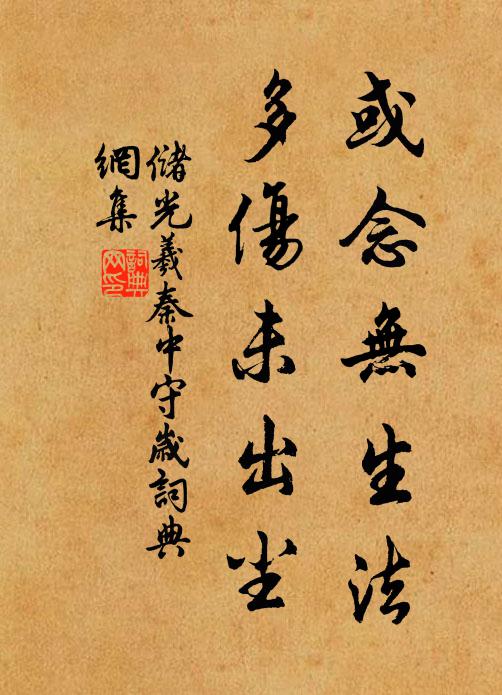 或念無生法
多傷未出尘
儲光羲秦中守歲詞典
網集
詞典
网印